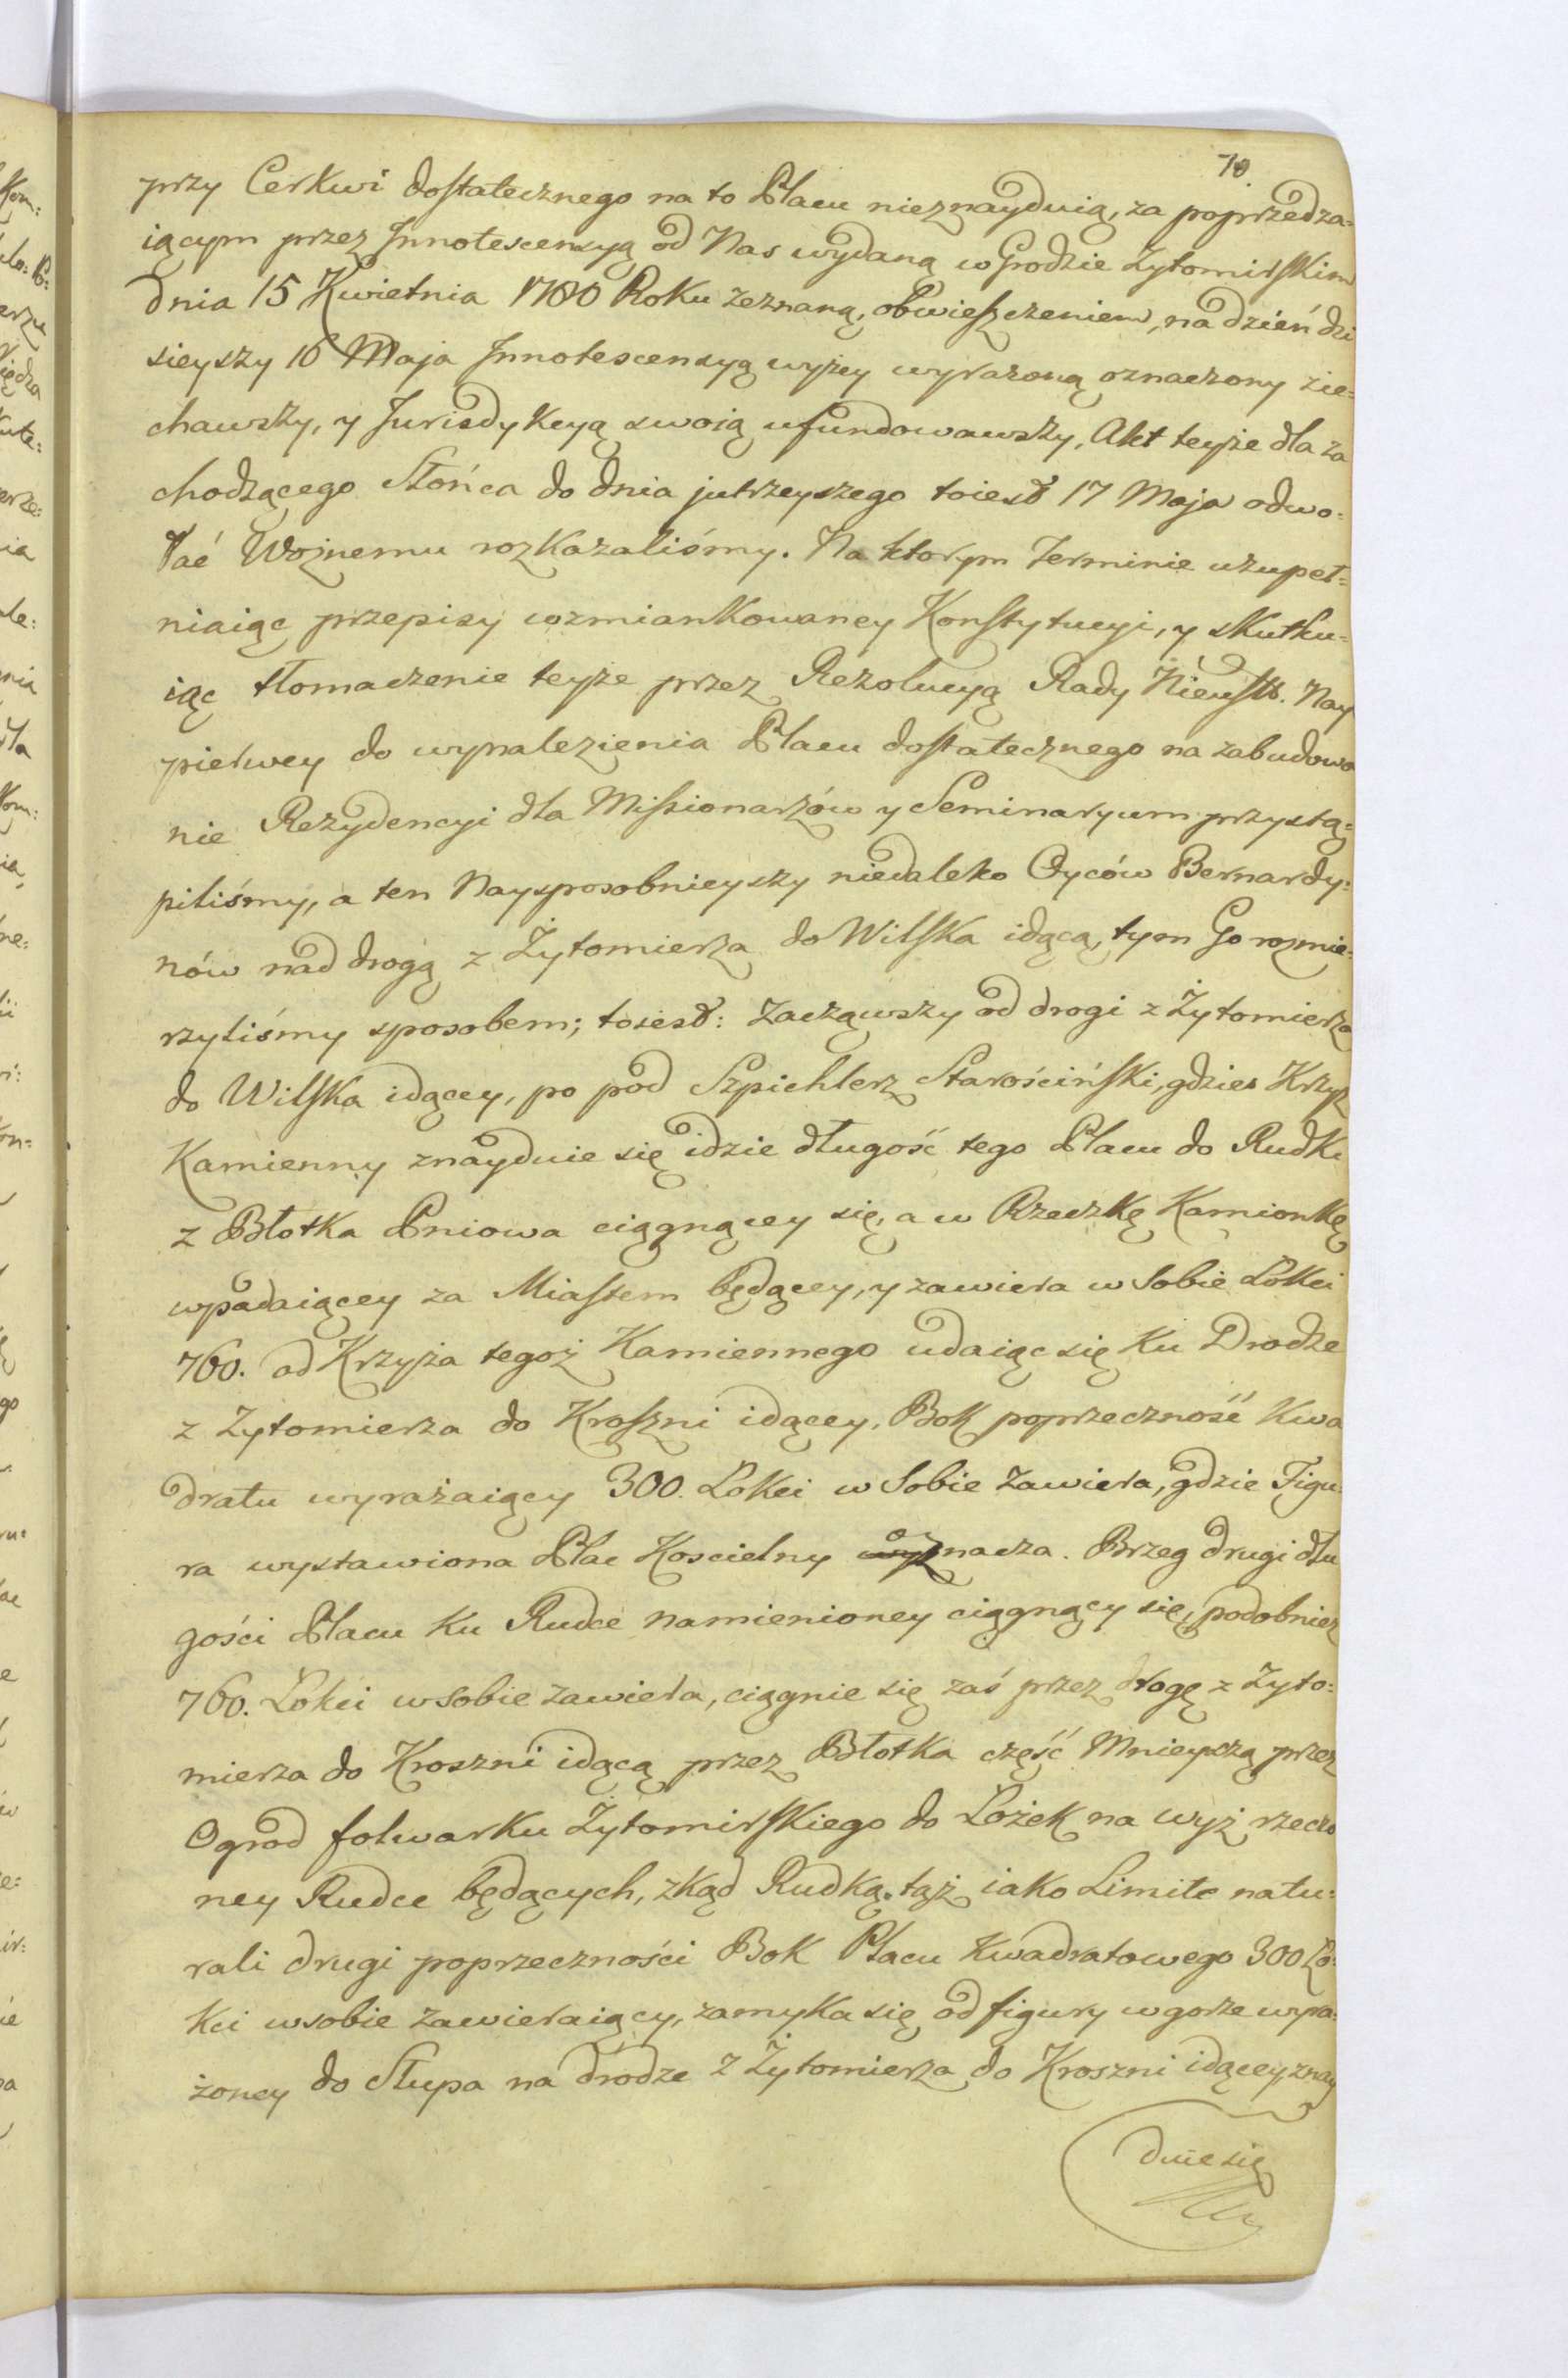 70.
przy Cerkwi dostatecznego na to Placu nieznayduią, za poprzedza=
iącym przez Innotescensyą od Nas wydaną w Grodzie Zytomirskim
dnia 15 Kwietnia 1780 Roku zeznaną, obwieszczeniem, na dzień dzi
sieyszy 16 Maja Innotescensyą wyżey wyrażoną oznaczony zie=
chawszy, y Jurisdykcyą swoią ufundowawszy, Akt teyże dla za
chodzącego Słońca do dnia jutrzeyszego toiest 17 Maja odwo=
łać Woznemu rozkazaliśmy. Na ktorym Terminie uzupeł=
niaiąc przepisy wzmiankowaney Konstytucyi, y skutku=
iąc tłomaczenie teyże przez Rezolucyą Rady Nieust. Nay
pierwey do wynalezienia Placu dostatecznego na zabudowa
nie Rezydencyi dla Missionarzów y Seminaryum przystą=
piliśmy, a ten Naysposobnieyszy niedaleko Oyców Bernardy=
nów nad drogą z Żytomierza do Wilska idącą, tym Go rozmie=
rzyliśmy sposobem; toiest: Zacząwszy od drogi z Żytomierza
do Wilska idącey, po pod Szpichlerz Starościński, gdzie Krzyż
Kamienny znayduie się idzie długość tego Placu do Rudki
z Błotka Pniowa ciągnącey się, a w Rzeczkę Kamionkę
wpadaiącey za Miastem będącey, y zawiera w Sobie Łokci
760. od Krzyża tegoż Kamiennego udaiąc się Ku Drodze
z Zytomierza do Kroszni idącey, Bok poprzeczność Kwa
dratu wyrażaiący 300. Łokci w Sobie Zawiera, gdzie Figu=
ra wystawiona Plac Koscielny oznacza. Brzeg drugi dłu
gości Placu Ku Rudce namienioney ciągnący się, podobnież
760. Łokci w Sobie zawiera, ciągnie się zaś przez drogę z Zyto=
mierza do Kroszni idącą przez Błotka część Mnieyszą przez
Ogrod folwarku Żytomirskiego do Łożek na wyż rzeczo
ney Rudce będących, zkąd Rudką taż iako Limite natu=
rali drugi poprzeczności Bok Placu Kwadratowego 300 Ło=
kci w sobie zawieraiący, zamyka się od figury w gorze wyra=
żoney do Słupa na drodze z Żytomierza do Kroszni idącey, znay
duie się